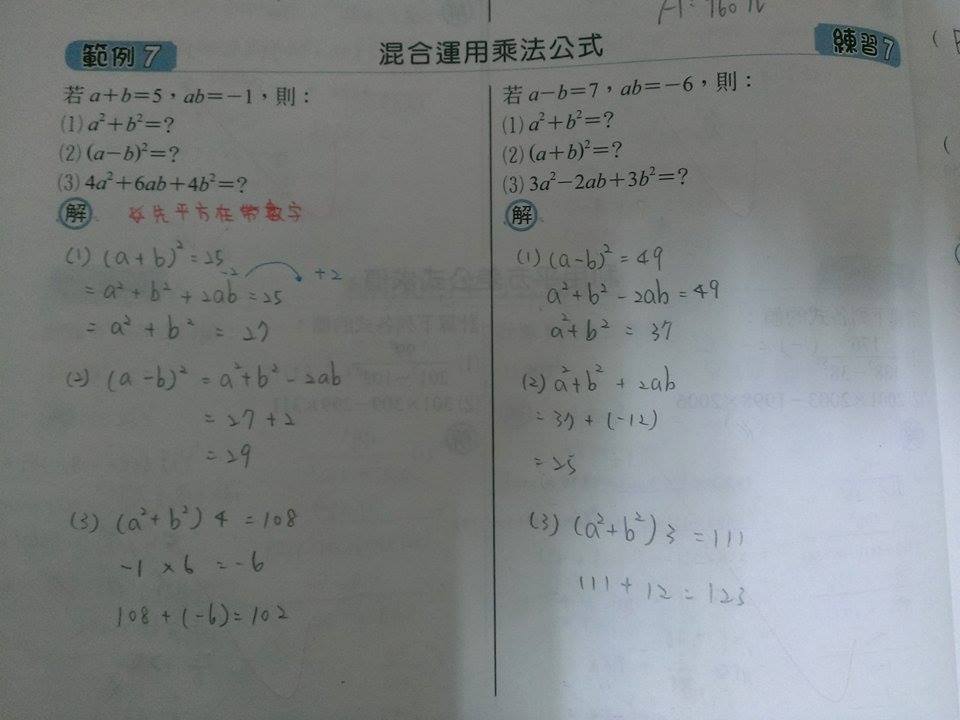 A=760π
範例 7
混合運用乘法公式
練習 7
若 a+b=5，ab=−1，則：
(1) a²+b²=？
(2) (a−b)²=？
(3) 4a²+6ab+4b²=？
解
☆先平方在帶數字
(1) (a+b)²=25
−2
+2
=a²+b²+2ab=25
=a²+b²=27
(2) (a−b)²=a²+b²−2ab
=27+2
=29
(3) (a²+b²)4=108
−1×6=−6
108+(−6)=102
若 a−b=7，ab=−6，則：
(1) a²+b²=？
(2) (a+b)²=？
(3) 3a²−2ab+3b²=？
解
(1) (a−b)²=49
a²+b²−2ab=49
a²+b²=37
(2) a²+b²+2ab
=37+(−12)
=25
(3) (a²+b²)3=111
111+12=123